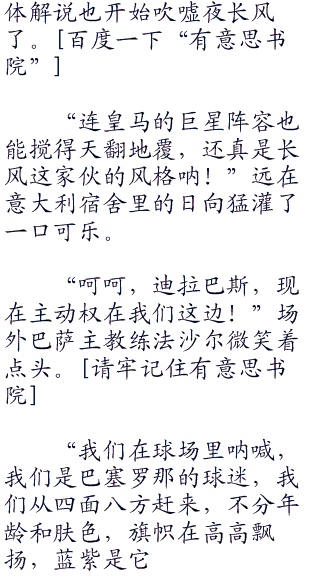 体解说也开始吹嘘夜长风
了。[百度一下“有意思书
院”]
“连皇马的巨星阵容也
能搅得天翻地覆，还真是长
风这家伙的风格呐！”远在
意大利宿舍里的日向猛灌了
一口可乐。
“呵呵，迪拉巴斯，现
在主动权在我们这边！”场
外巴萨主教练法沙尔微笑着
点头。[请牢记住有意思书
院]
“我们在球场里呐喊，
我们是巴塞罗那的球迷，我
们从四面八方赶来，不分年
龄和肤色，旗帜在高高飘
扬，蓝紫是它